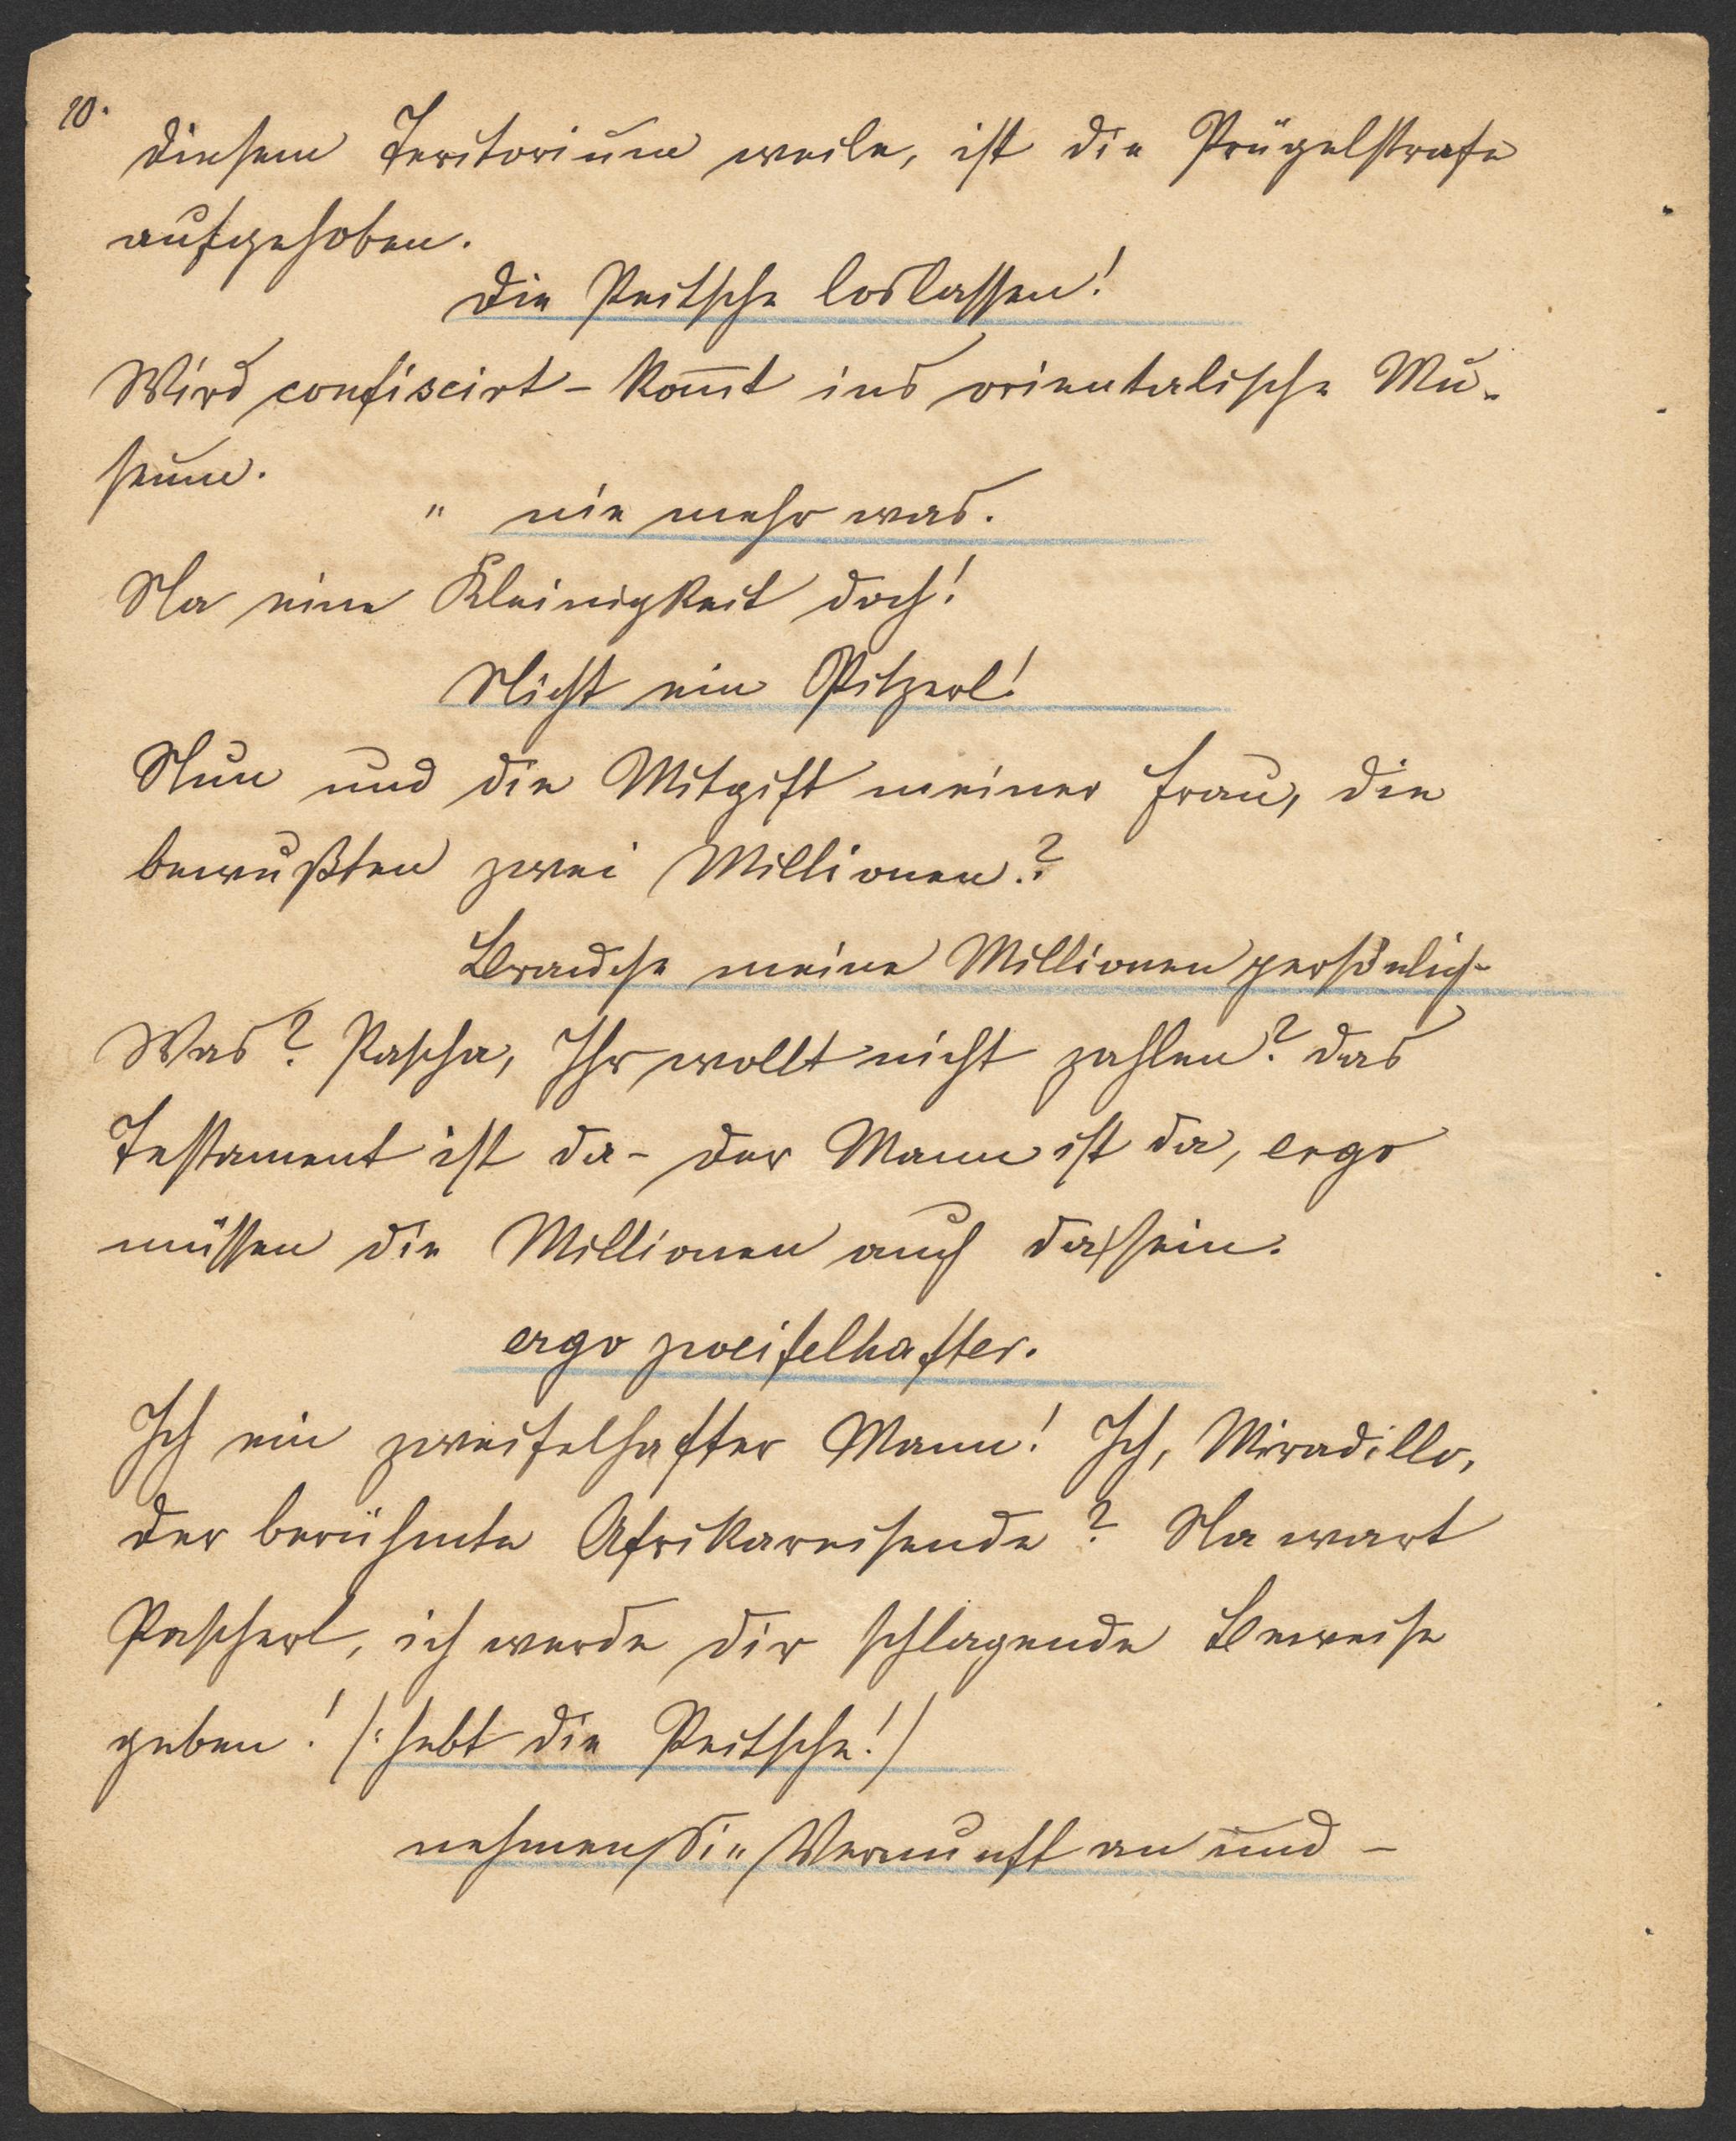 10.
diesem Teritorium weile, ist die Prügelstrafe
aufgehoben.
Die Peitsche loslassen!
Wird confiscirt - kom̄t ins orientalische Mu-
seum.
" nie mehr was.
Na eine Kleinigkeit doch!
Nicht ein Pitzerl!
Nun und die Mitgift meiner Frau, die
bewußten zwei Millionen?
Brauche meine Millionen persönlich
Was? Pascha, Ihr wollt nicht zahlen? Das
Testament ist da - der Mann ist da, ergo
müssen die Millionen auch da sein.
ergo zweifelhafter.
Ich ein zweifelhafter Mann! Ich, Miradillo,
der berühmte Afrikareisende? Na wart
Pascherl, ich werde dir schlagende Beweise
geben! /: hebt die Peitsche! /
nehmen Sie Vernunft an und -